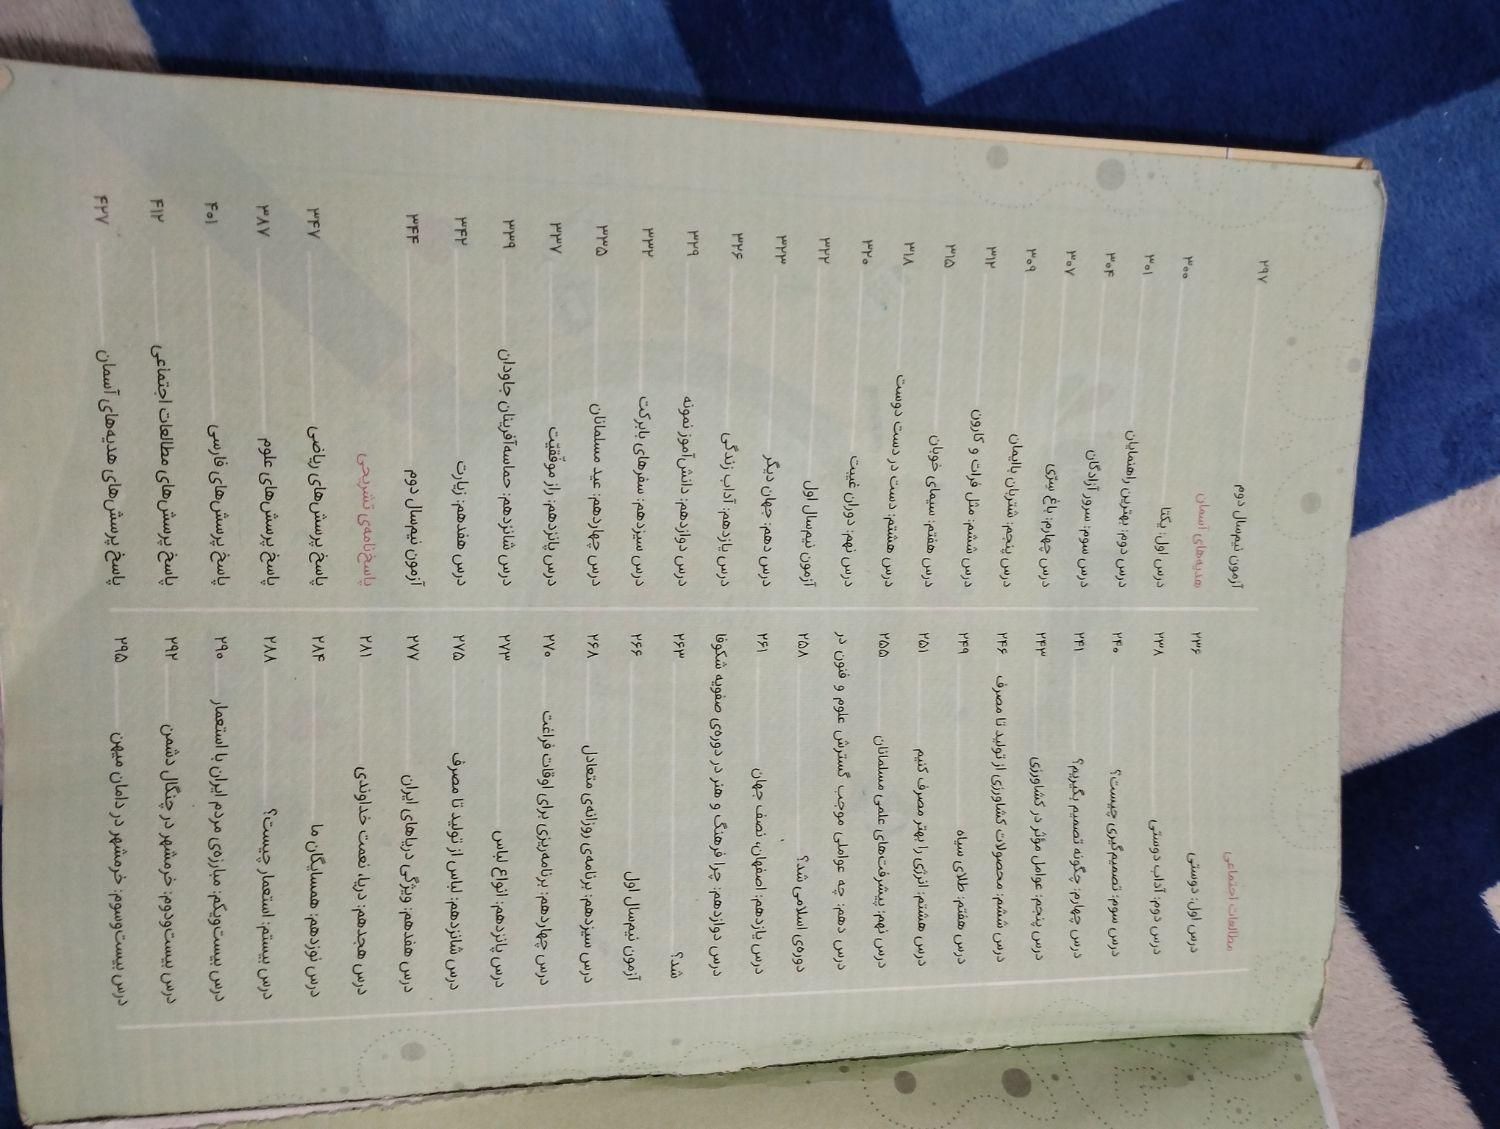 مطالعات اجتماعی
درس اول: دوستی ۲۳۶
درس دوم: آداب دوستی ۲۳۸
درس سوم: تصمیم‌گیری چیست؟ ۲۴۰
درس چهارم: چگونه تصمیم بگیریم؟ ۲۴۱
درس پنجم: عوامل مؤثر در کشاورزی ۲۴۳
درس ششم: محصولات کشاورزی از تولید تا مصرف ۲۴۶
درس هفتم: طلای سیاه ۲۴۹
درس هشتم: انرژی را بهتر مصرف کنیم ۲۵۱
درس نهم: پیشرفت‌های علمی مسلمانان ۲۵۵
درس دهم: چه عواملی موجب گسترش علوم و فنون در
دوره‌ی اسلامی شد؟ ۲۵۸
درس یازدهم: اصفهان، نصف جهان ۲۶۱
درس دوازدهم: چرا فرهنگ و هنر در دوره‌ی صفویه شکوفا
شد؟ ۲۶۳
آزمون نیم‌سال اول ۲۶۶
درس سیزدهم: برنامه‌ی روزانه‌ی متعادل ۲۶۸
درس چهاردهم: برنامه‌ریزی برای اوقات فراغت ۲۷۰
درس پانزدهم: انواع لباس ۲۷۳
درس شانزدهم: لباس از تولید تا مصرف ۲۷۵
درس هفدهم: ویژگی دریاهای ایران ۲۷۷
درس هجدهم: دریا، نعمت خداوندی ۲۸۱
درس نوزدهم: همسایگان ما ۲۸۴
درس بیستم: استعمار چیست؟ ۲۸۸
درس بیست‌ویکم: مبارزه‌ی مردم ایران با استعمار ۲۹۰
درس بیست‌ودوم: خرمشهر در چنگال دشمن ۲۹۲
درس بیست‌وسوم: خرمشهر در دامان میهن ۲۹۵
آزمون نیم‌سال دوم ۲۹۷
هدیه‌های آسمان
درس اول: یکتا ۳۰۰
درس دوم: بهترین راهنمایان ۳۰۱
درس سوم: سرور آزادگان ۳۰۴
درس چهارم: باغ سرّی ۳۰۷
درس پنجم: شتربان باایمان ۳۰۹
درس ششم: مثل فرات و کارون ۳۱۲
درس هفتم: سیمای خوبان ۳۱۵
درس هشتم: دست در دست دوست ۳۱۸
درس نهم: دوران غیبت ۳۲۰
آزمون نیم‌سال اول ۳۲۲
درس دهم: جهان دیگر ۳۲۳
درس یازدهم: آداب زندگی ۳۲۶
درس دوازدهم: دانش‌آموز نمونه ۳۲۹
درس سیزدهم: سفرهای بابرکت ۳۳۲
درس چهاردهم: عید مسلمانان ۳۳۵
درس پانزدهم: راز موفّقیّت ۳۳۷
درس شانزدهم: حماسه‌آفرینان جاودان ۳۳۹
درس هفدهم: زیارت ۳۴۲
آزمون نیم‌سال دوم ۳۴۴
پاسخ‌نامه‌ی تشریحی
پاسخ پرسش‌های ریاضی ۳۴۷
پاسخ پرسش‌های علوم ۳۸۷
پاسخ پرسش‌های فارسی ۴۰۱
پاسخ پرسش‌های مطالعات اجتماعی ۴۱۲
پاسخ پرسش‌های هدیه‌های آسمان ۴۲۷